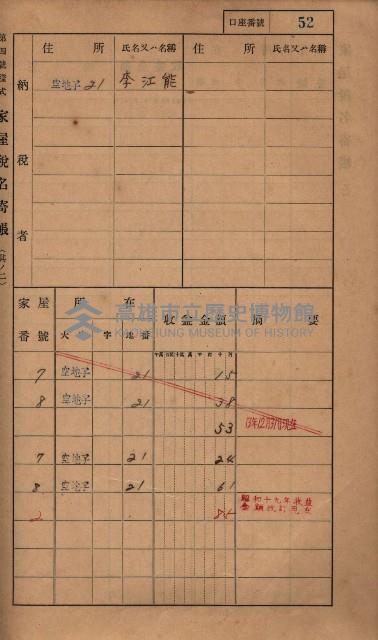 口座番號 52
第四號樣式 家屋稅名寄帳(其ノ一)
納稅者
住所 氏名又ハ名稱 住所 氏名又ハ名稱
空地子 21 李江能
家屋番號 所在 大字 地番 收益金額 摘要
高雄市立歷史博物館
KAOHSIUNG MUSEUM OF HISTORY
7 空地子 21 15
8 空地子 21 38
53 13年12月31日現在
7 空地子 21 24
8 空地子 21 61
2 85
昭和十九年收益
金額改訂